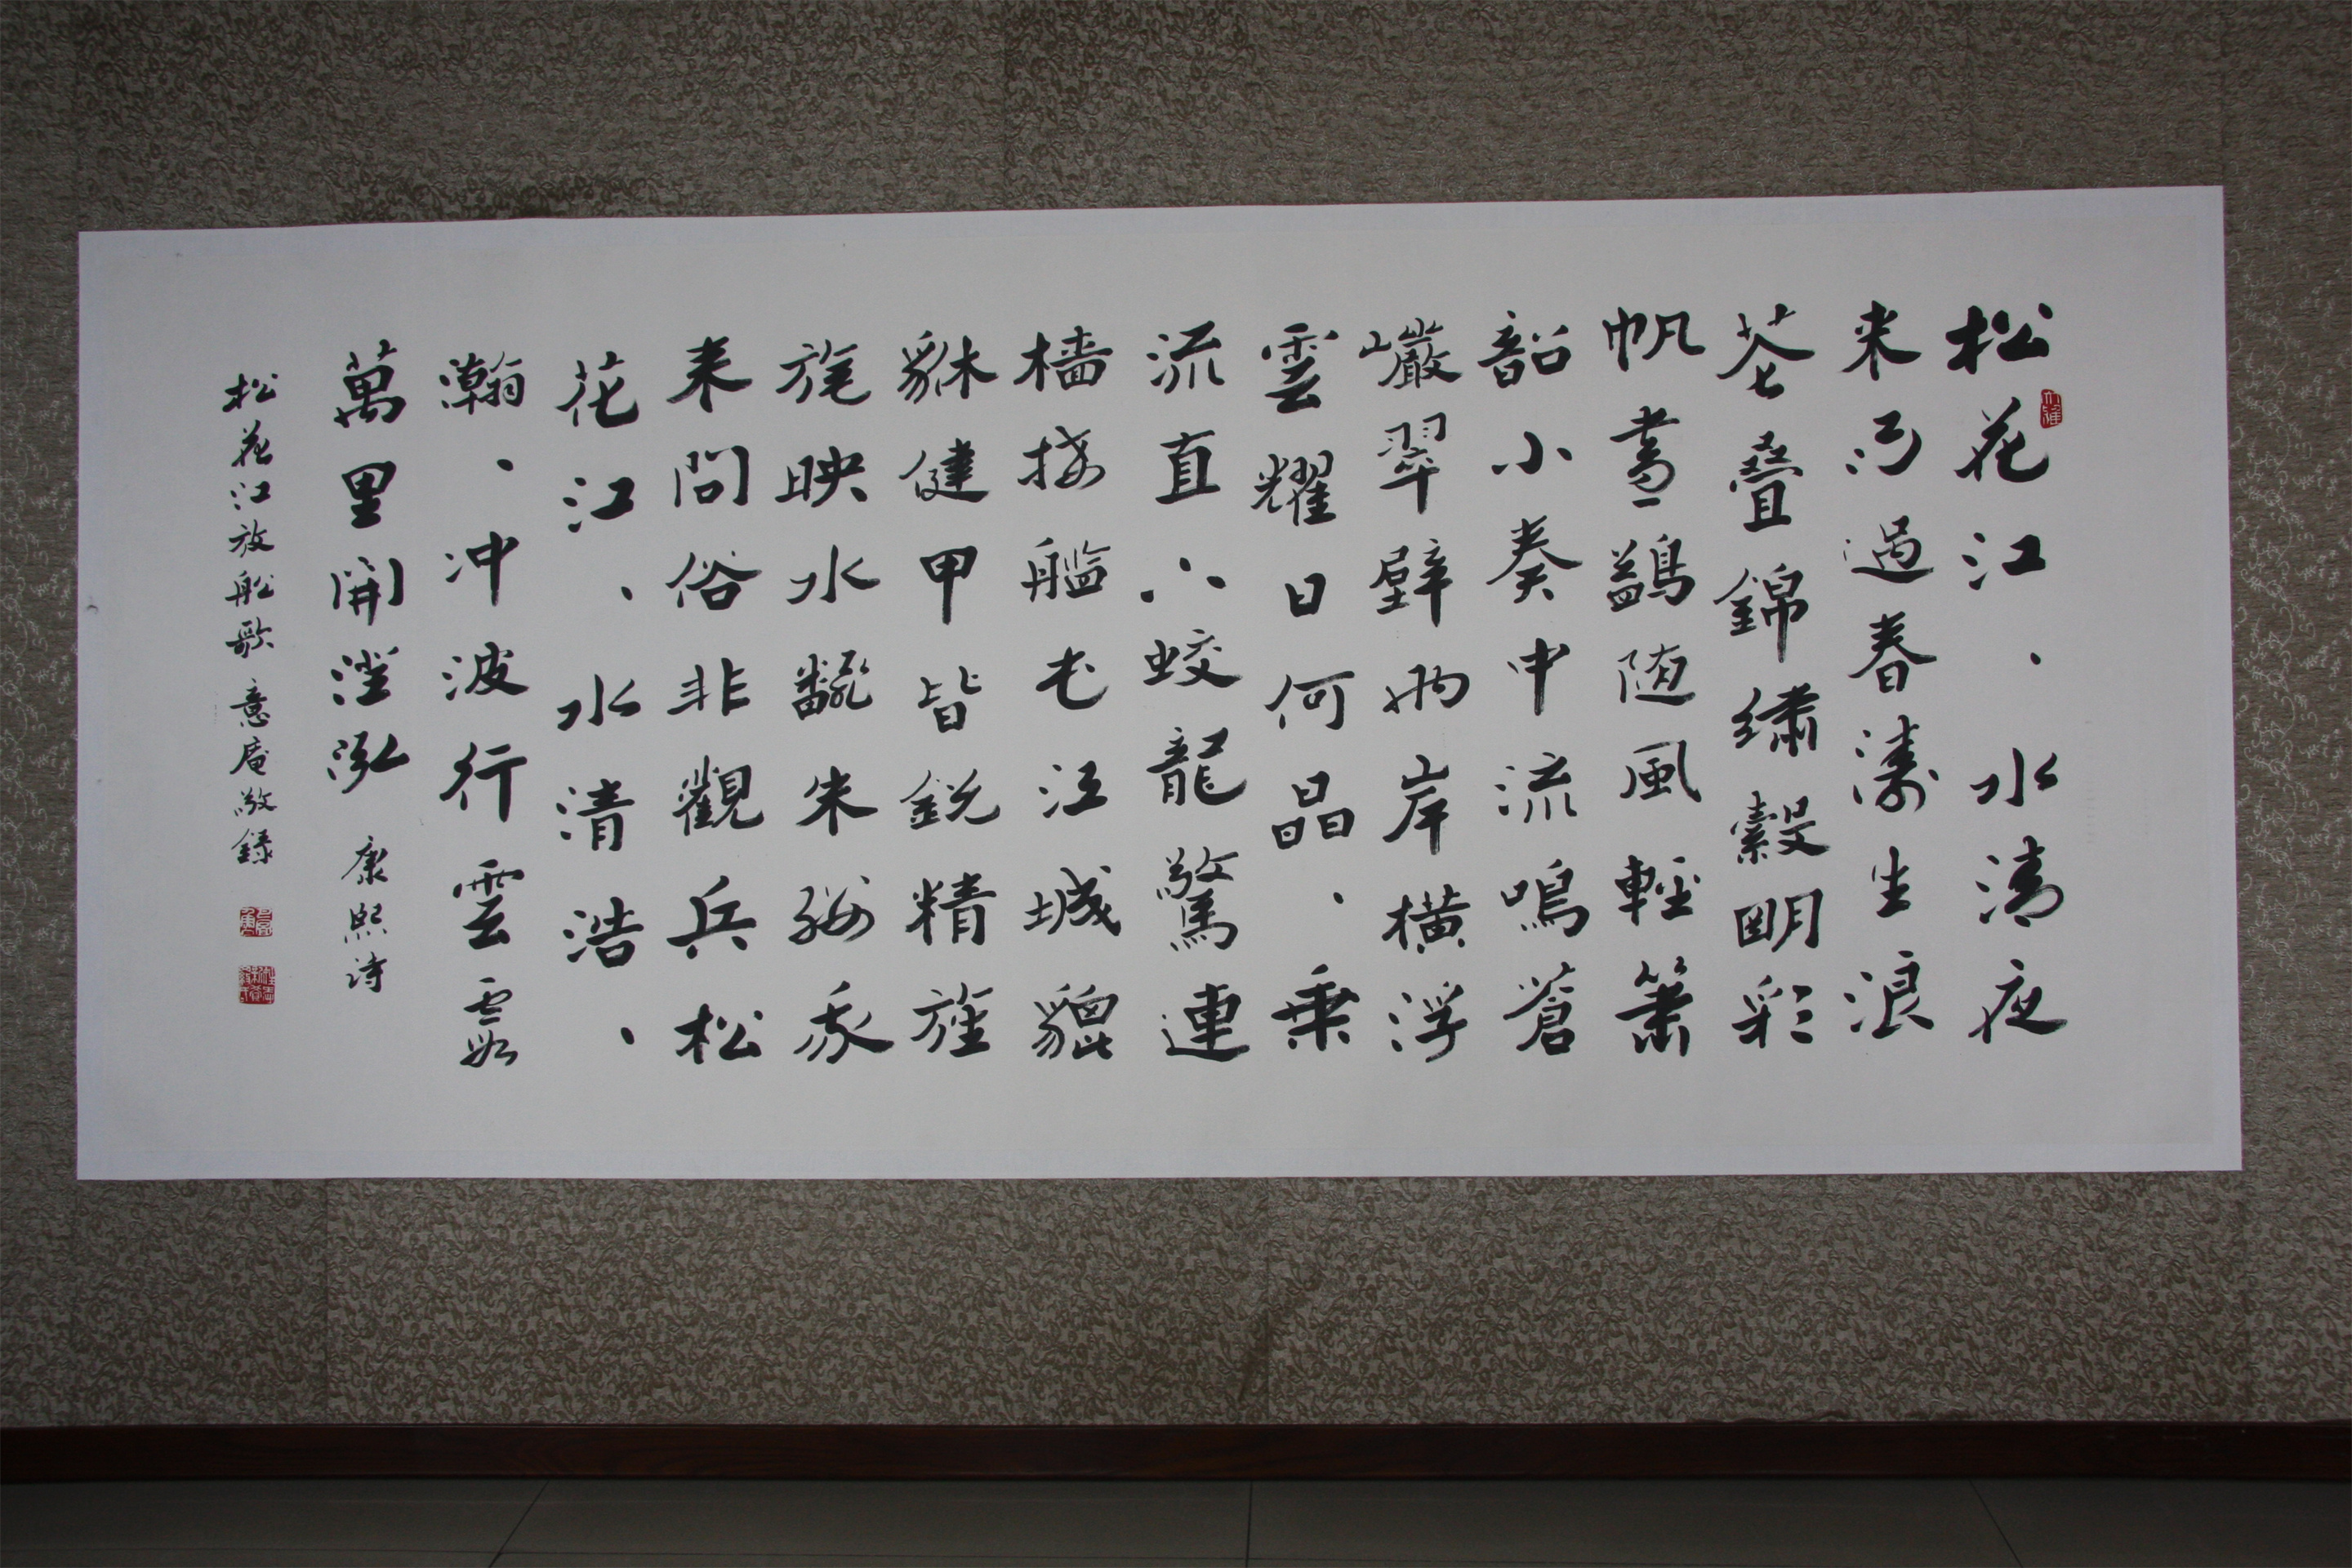 松花江、水清夜
来雨過春濤生浪
花疊錦繡縠明彩
帆畫鷁随風輕簫
韶小奏中流鳴蒼
巖翠壁兩岸橫浮
雲耀日何晶、乗
流直下蛟龍驚連
檣接艦屯江城貔
貅健甲皆鋭精旌
旄映水翻朱纓我
来問俗非觀兵松
花江、水清浩、
瀚、冲波行雲霞
萬里開澄泓 康熙詩
松花江放船歌 意庵敬録